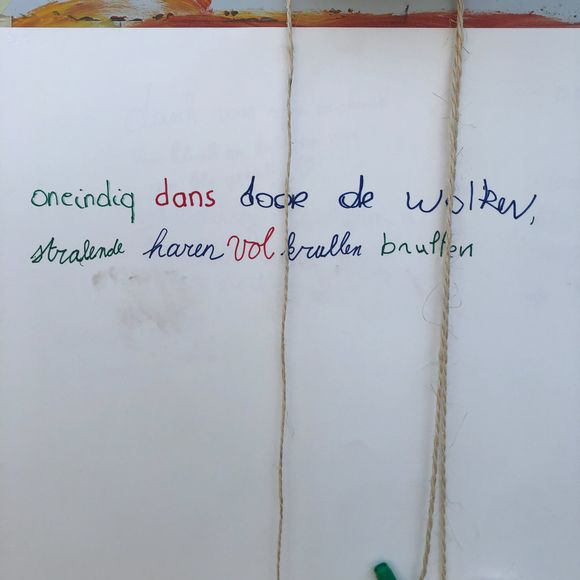 oneindig dans door de wolken,
stralende haren vol krullen brullen